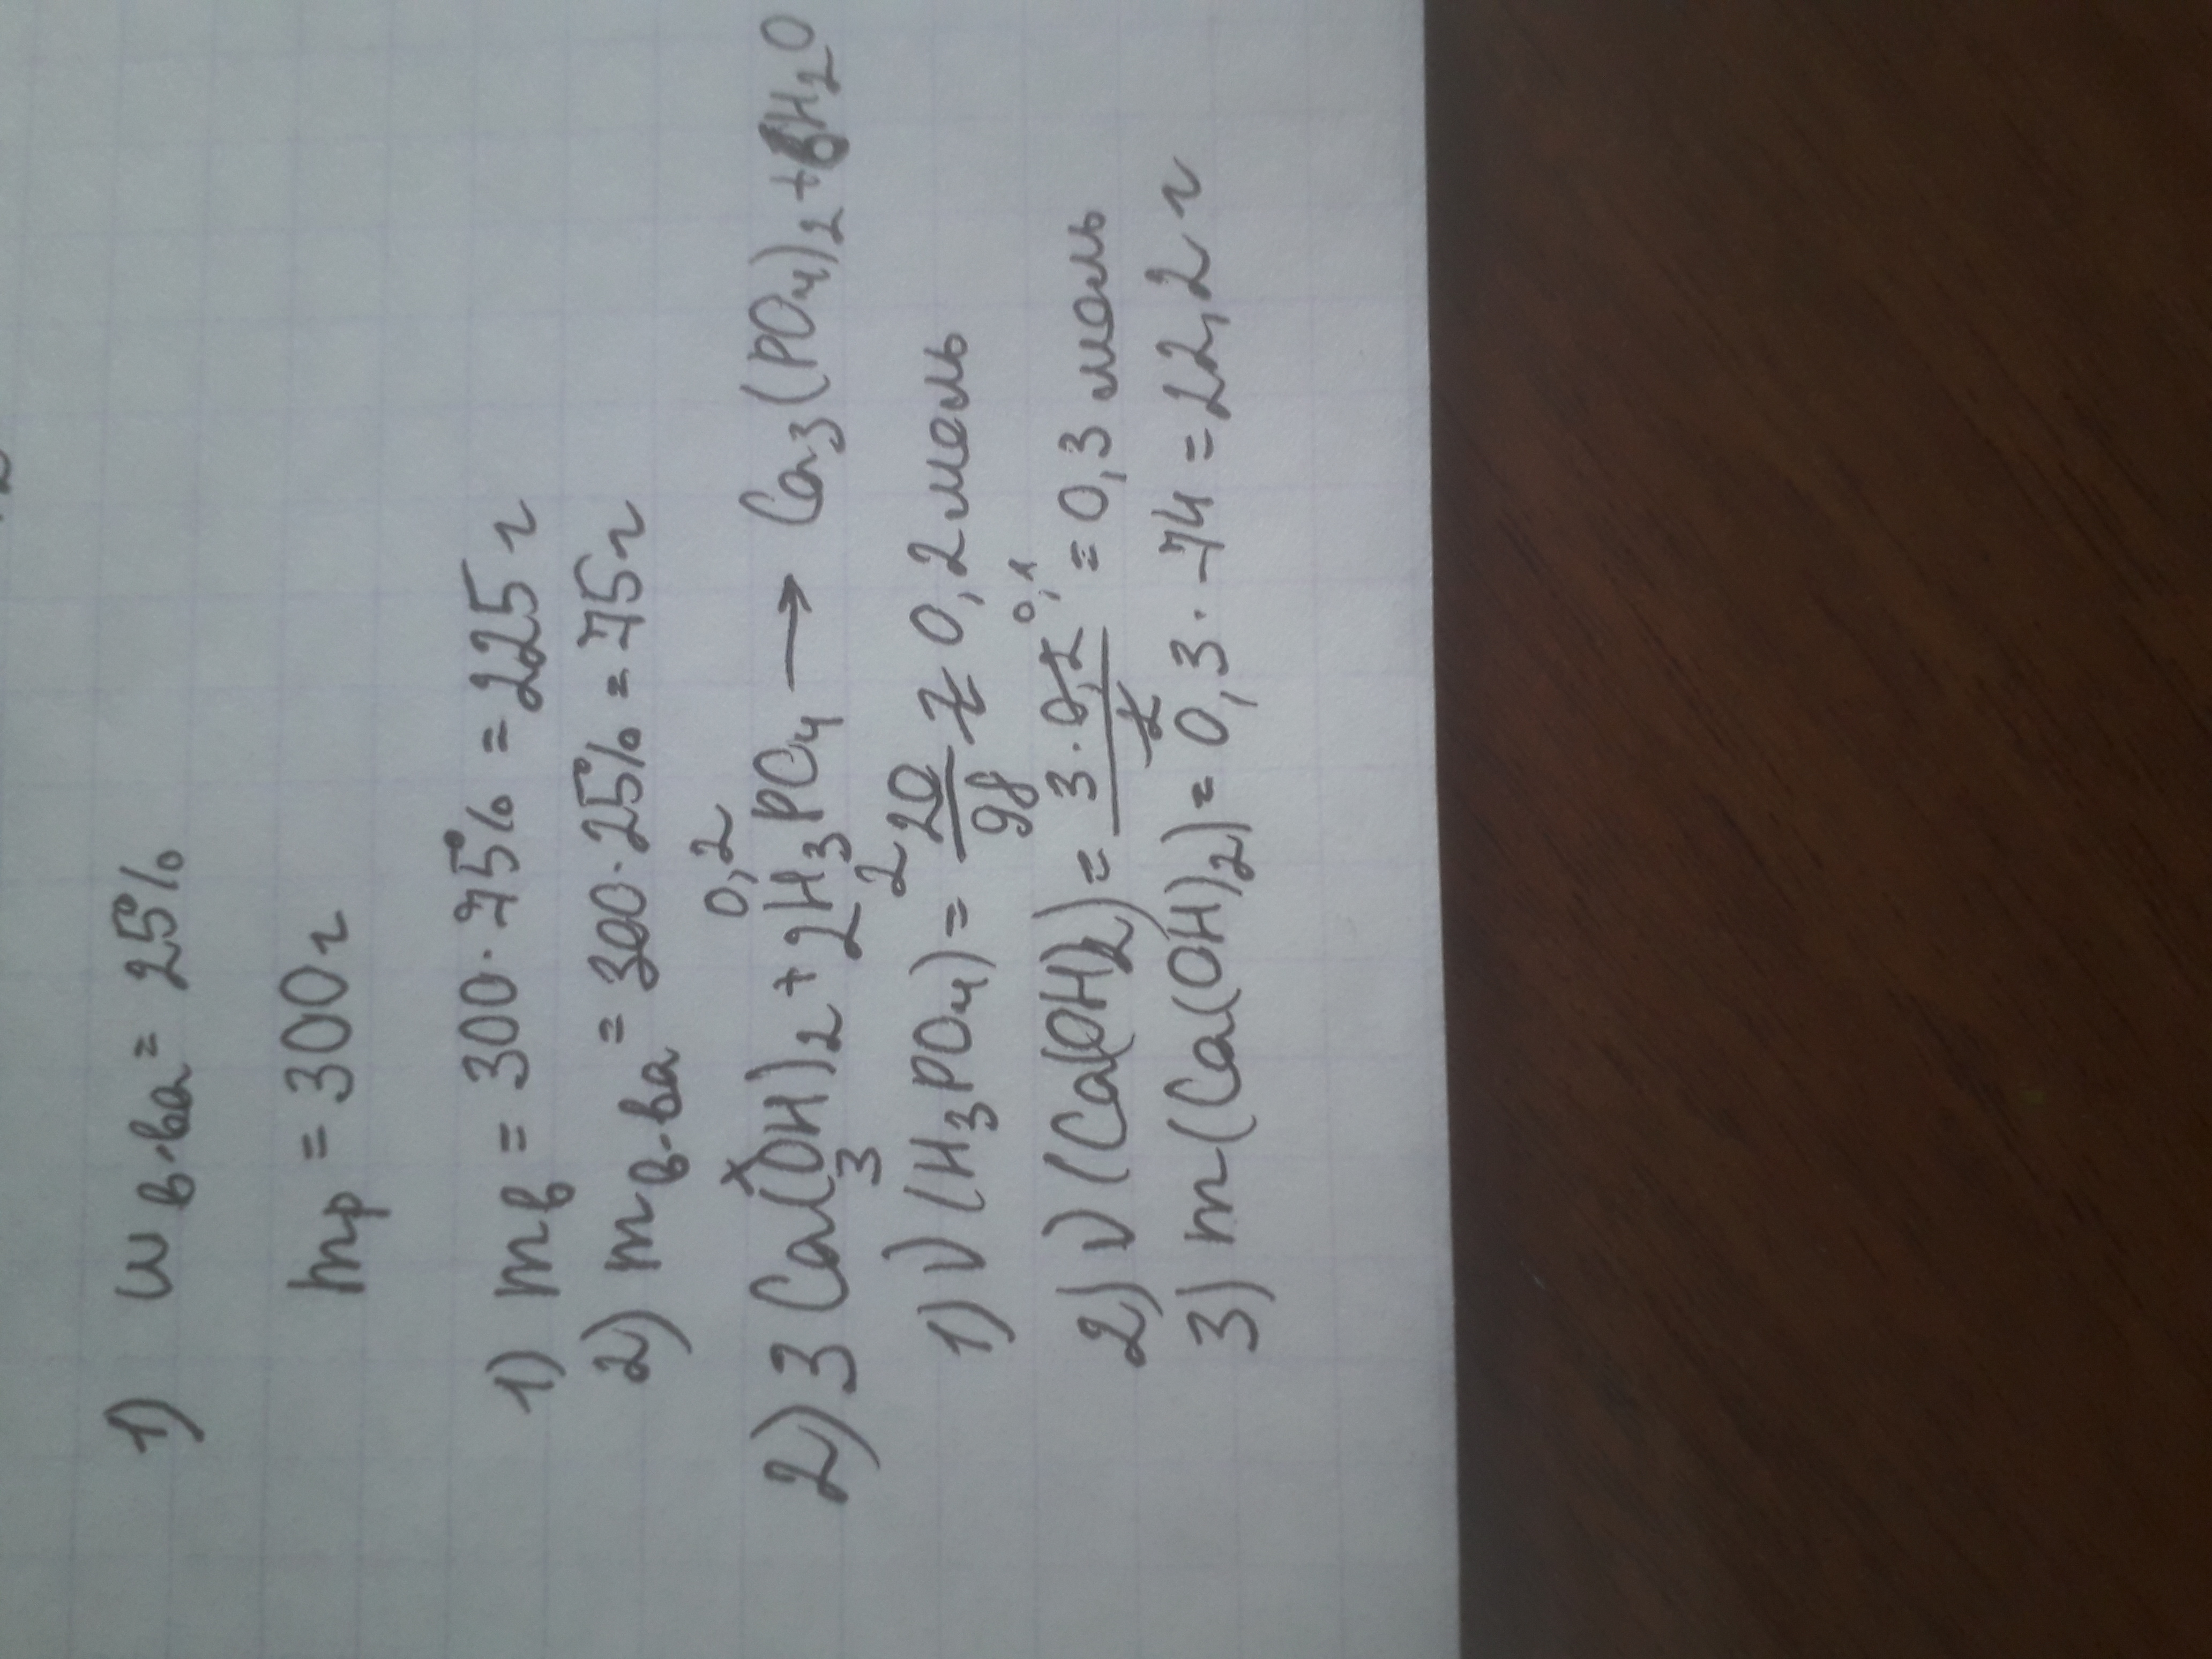 1) W в-ва = 25%
mр = 300г
1) mв = 300·75% = 225г
2) mв-ва = 300·25% = 75г
x 0,2
2) 3Ca(OH)2 + 2H3PO4 → Ca3(PO4)2 + 6H2O
3 2
1) ν(H3PO4) = 20/98 = 0,2 моль
2) ν(Ca(OH)2) = 3·0,2/2 0,1 = 0,3 моль
3) m(Ca(OH)2) = 0,3·74 = 22,2г